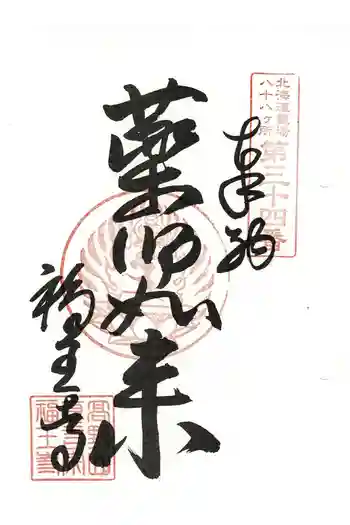 北海道霊場
八十八ヶ所
第三十四番
奉拝
薬師如来
福王寺